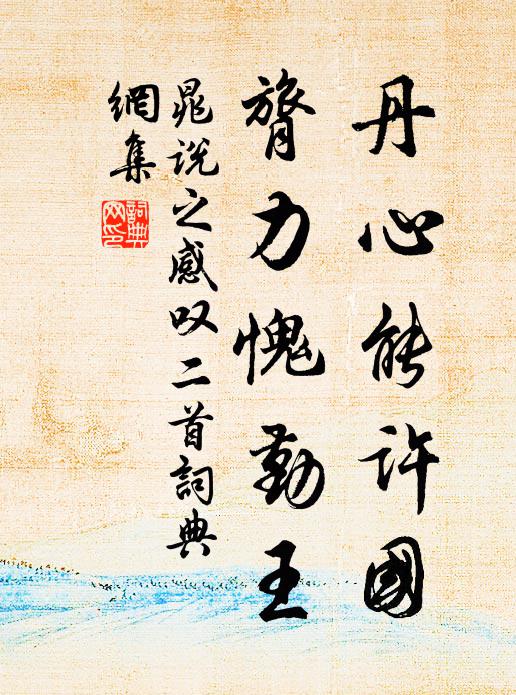 丹心能许國
膂力愧勤王
晁说之感叹二首詞典
網集
詞典網印